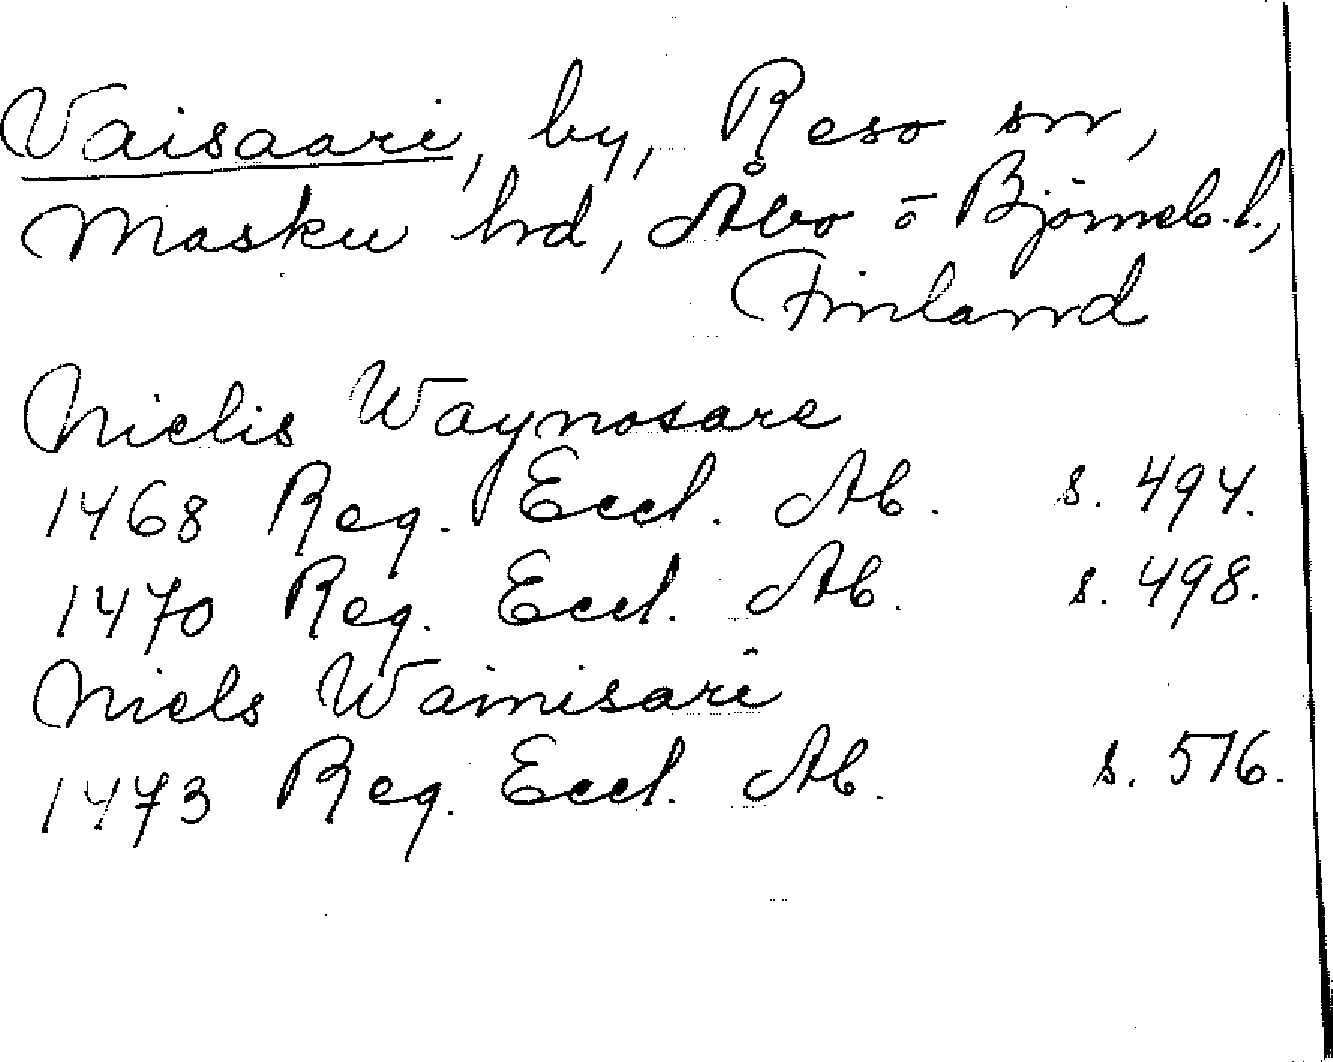 Vaisaari, by, Reso sn,
Masku hd, Åbo o Björneb. l.,
Finland
Nielis Waynosare
1468 Reg. Eccl. Ab. s. 494.
1470 Reg. Eccl. Ab. s. 498.
Niels Wainisari
1473 Reg. Eccl. Ab. s. 516.